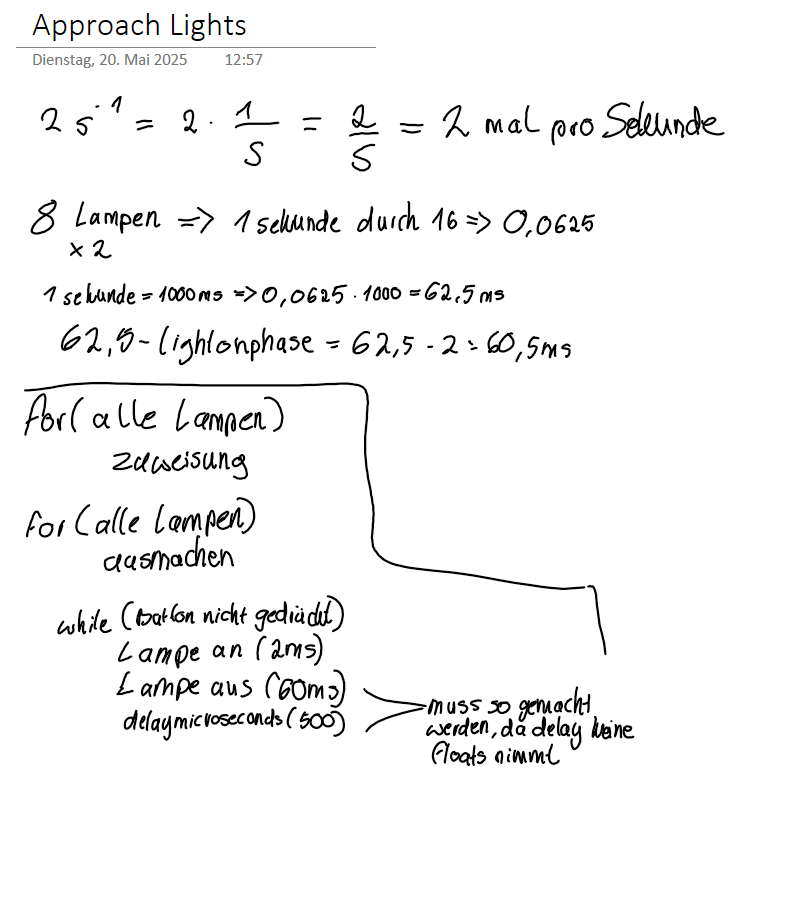 Approach Lights
Dienstag, 20. Mai 2025 12:57
2 s⁻¹ = 2 · 1/s = 2/s = 2 mal pro Sekunde
8 Lampen => 1 sekunde durch 16 => 0,0625
x 2
1 sekunde = 1000 ms => 0,0625 · 1000 = 62,5 ms
62,5 - lightonphase = 62,5 - 2 = 60,5ms
for( alle Lampen)
zuweisung
for (alle Lampen)
ausmachen
while (button nicht gedrückt)
Lampe an (2ms)
Lampe aus (60ms)
delaymicroseconds (500)
muss so gemacht
werden, da delay keine
floats nimmt